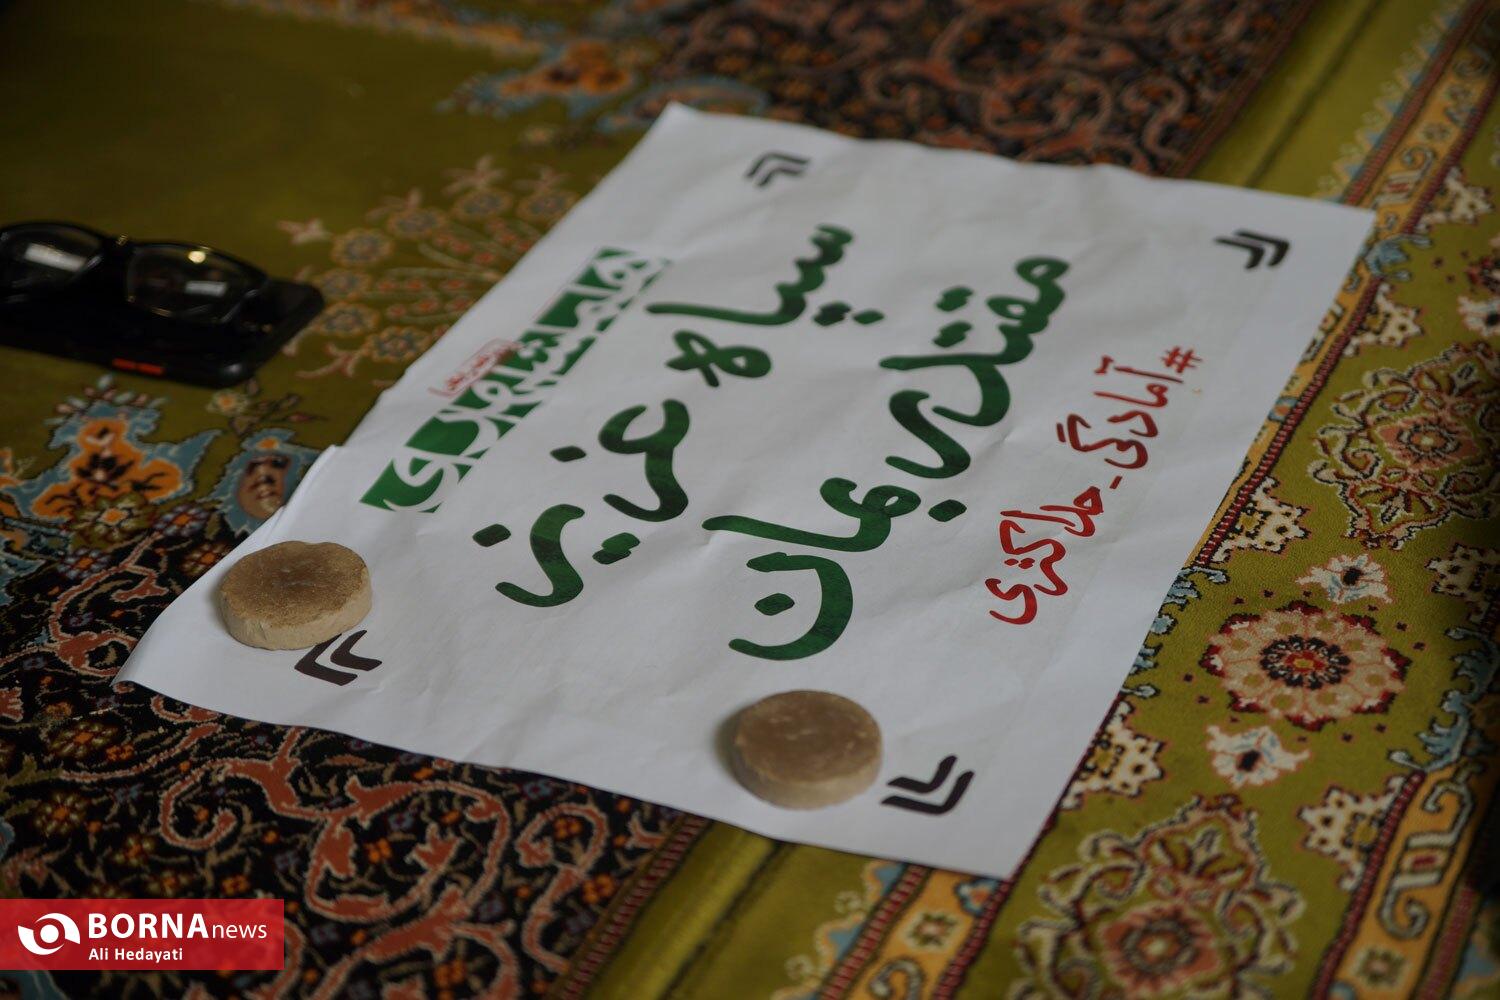 سپاه عزیز
مقتدر بمان
#آمادگی_حداکثری
BORNAnews
Ali Hedayati